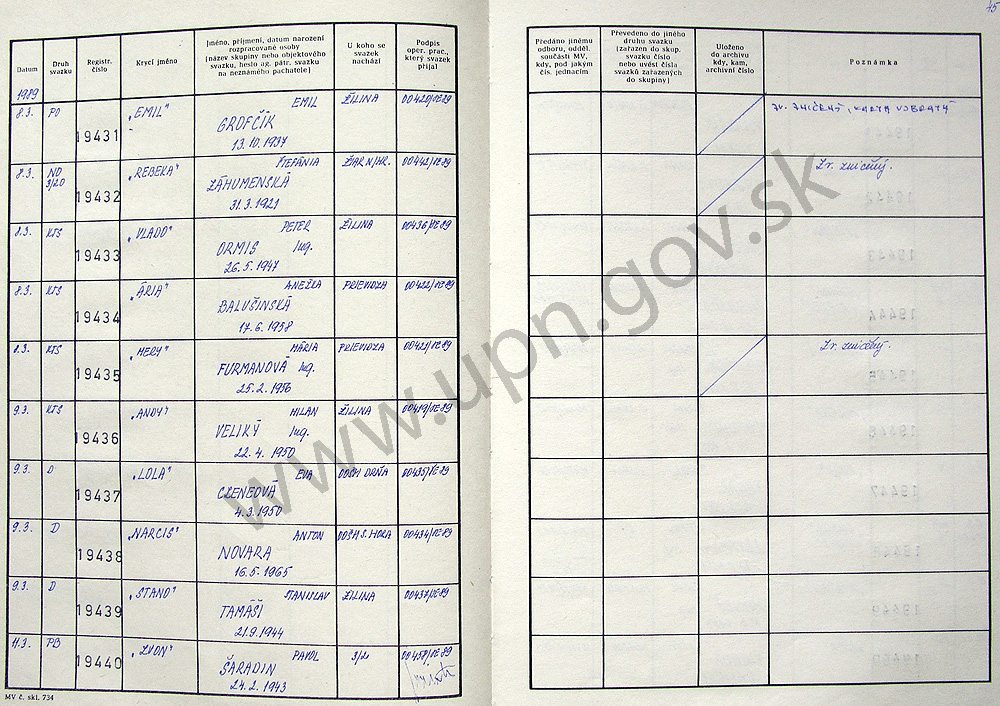 45
Datum
Druh svazku
Registr. číslo
Krycí jméno
Jméno, příjmení, datum narození
rozpracované osoby
(název skupiny nebo objektového
svazku, heslo ag. pátr. svazku
na neznámého pachatele)
U koho se
svazek
nachází
Podpis
oper. prac.,
který svazek
přijal
Předáno jinému
odboru, odděl.
součásti MV,
kdy, pod jakým
čís. jednacím
Převedeno do jiného
druhu svazku
(zařazen do skup.
svazku číslo
nebo uvést čísla
svazků zařazených
do skupiny)
Uloženo
do archivu
kdy, kam,
archivní číslo
Poznámka
1989
8.3. PO 19431 „EMIL" EMIL ŽILINA
GROFČÍK
13.10.1937
ZV. ZNIČENÝ, KARTA VYBRATÁ
8.3. ND 3/20 19432 „REBEKA" ŠTEFÁNIA ŽIAR N/HR.
ZÁHUMENSKÁ
31.3.1921
Zv. zničený.
8.3. KTS 19433 „VLADO" PETER ŽILINA
ORMIS Ing.
26.5.1947
8.3. KTS 19434 „ÁRIA" ANEŽKA PRIEVIDZA
BALUŠINSKÁ
17.6.1958
8.3. KTS 19435 „MERY" MÁRIA PRIEVIDZA
FURMANOVÁ Ing.
25.2.1956
Zv. zničený.
9.3. KTS 19436 „ANDY" MILAN ŽILINA
VELIKÝ Ing.
22.4.1950
9.3. D 19437 „LOLA" EVA
4.3.1950
9.3. D 19438 „NARCIS" ANTON
NOVARA
16.5.1965
9.3. D 19439 „STANO" STANISLAV ŽILINA
TAMÁŠI
21.9.1944
11.3. PB 19440 „ZVON" PAVOL 3/2
ŠARADIN
24.2.1943
MV č. skl. 734
www.upn.gov.sk